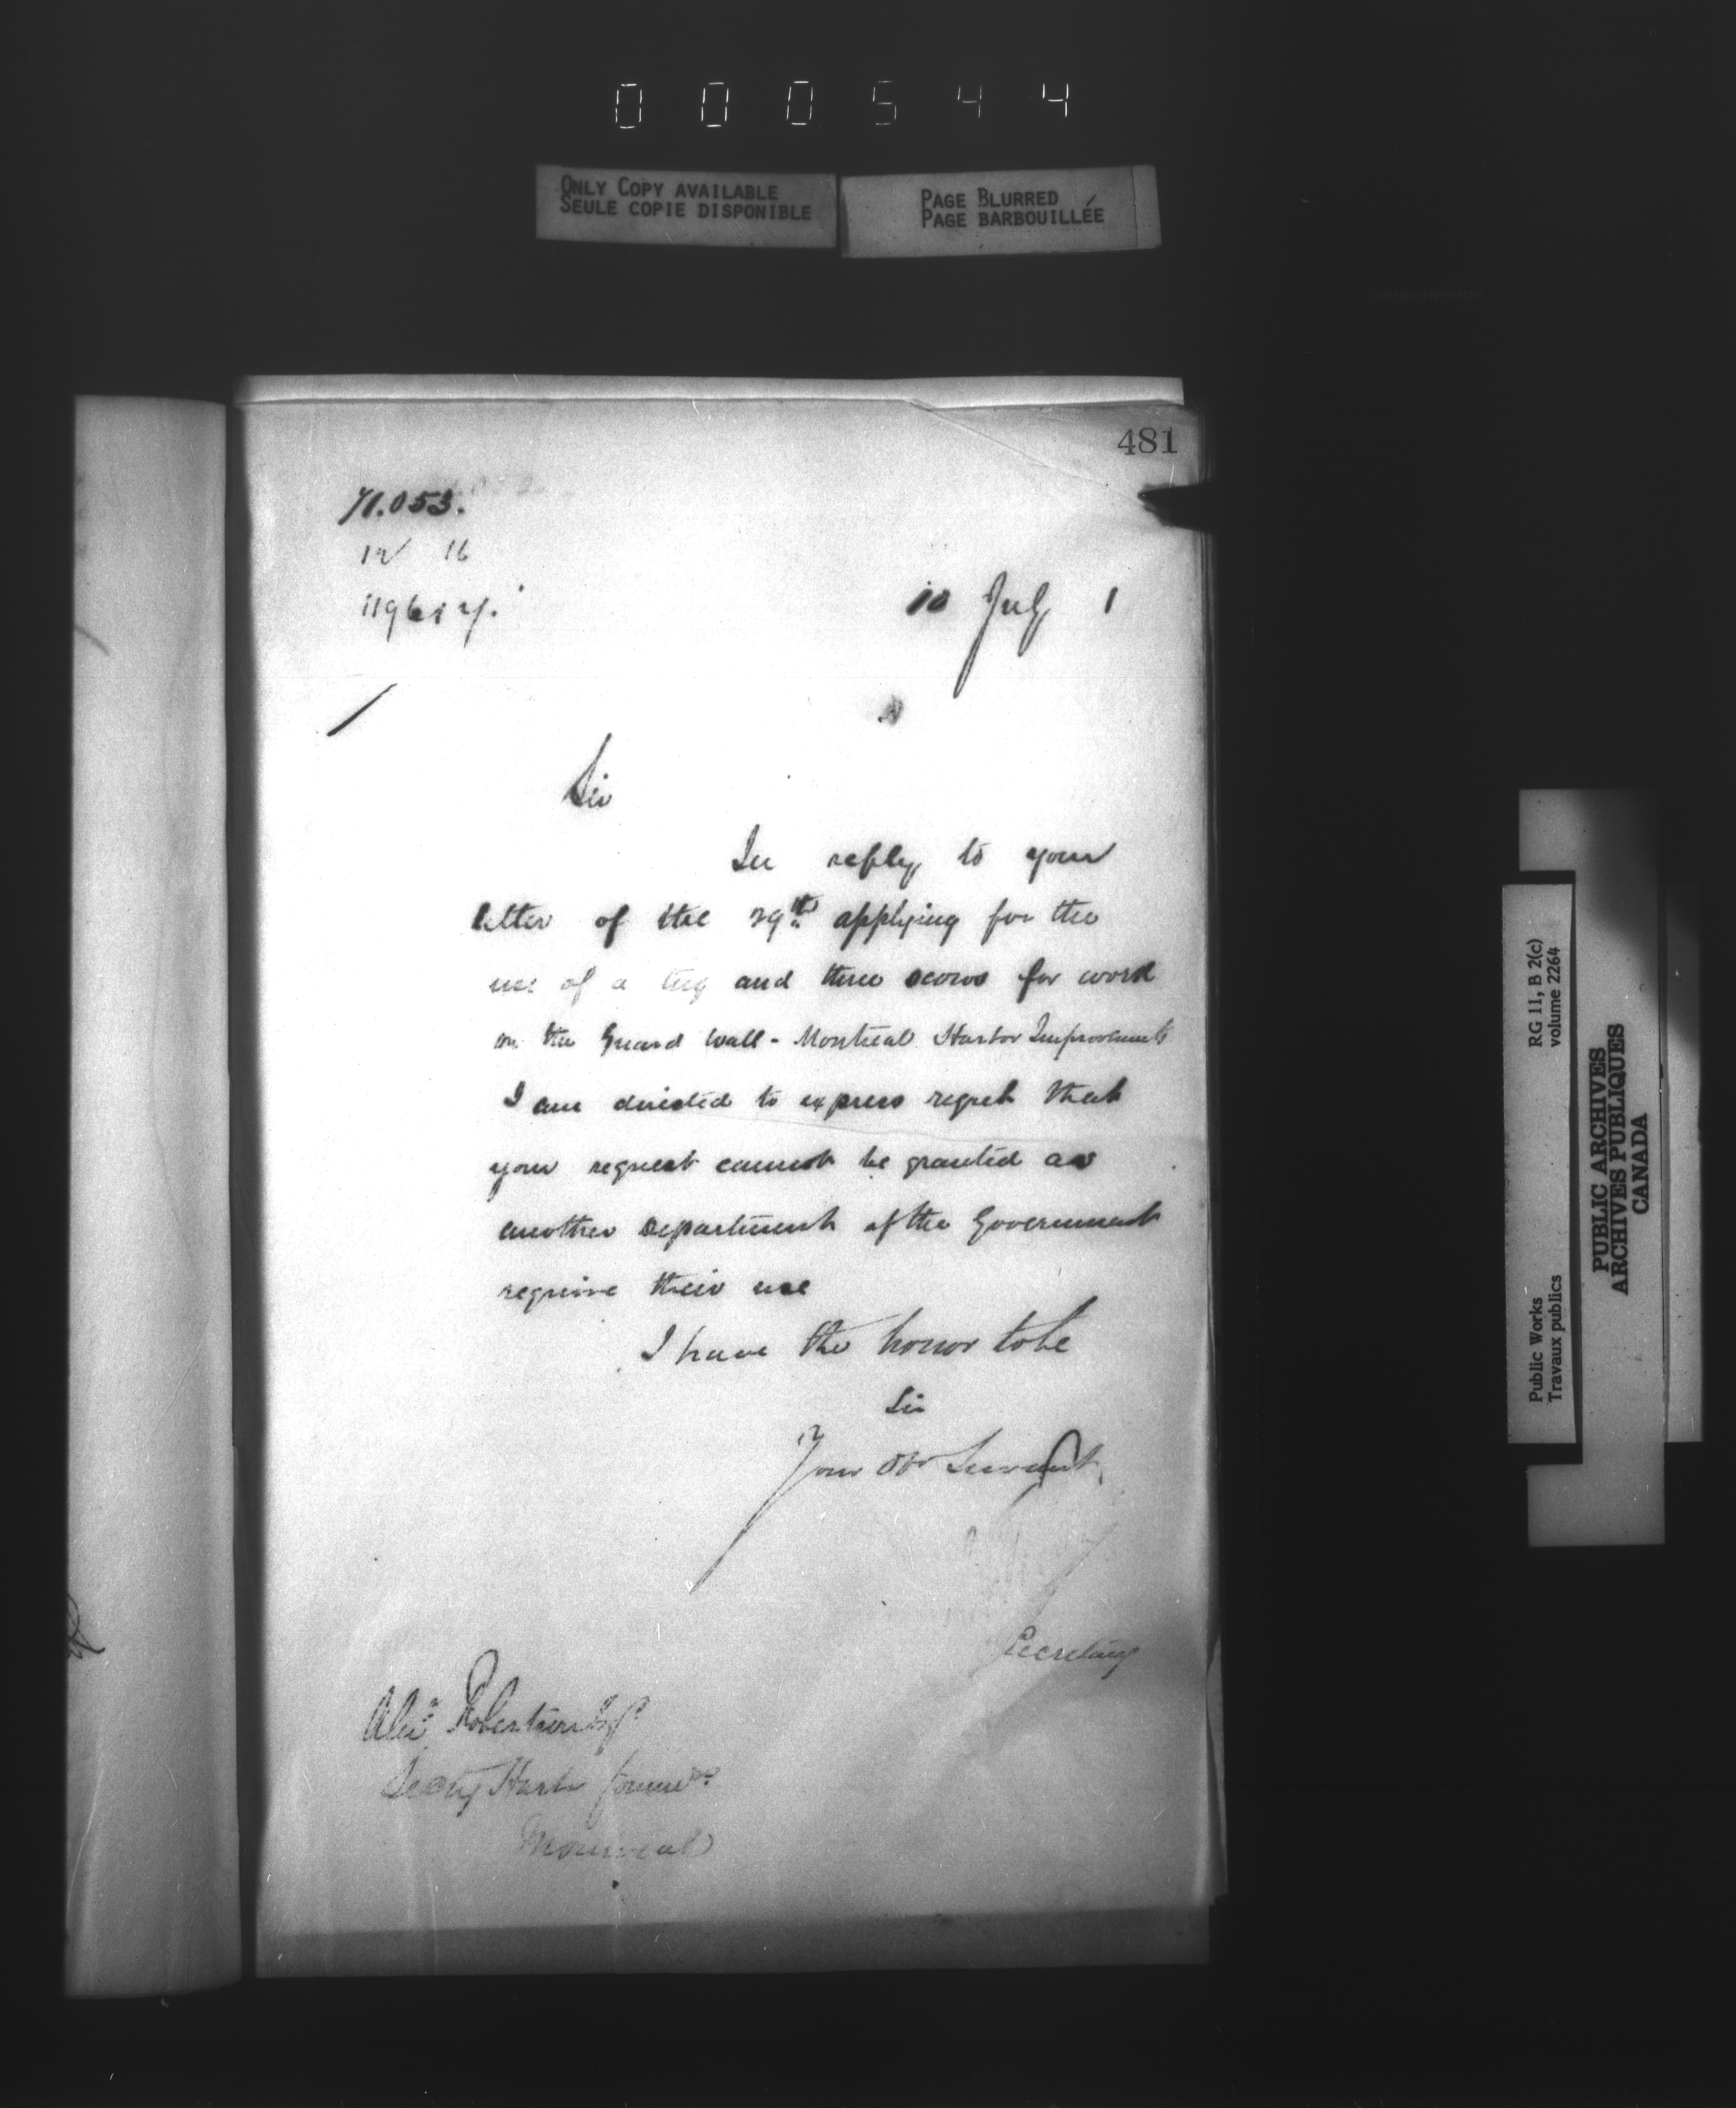 000544
ONLY COPY AVAILABLE
SEULE COPIE DISPONIBLE
PAGE BLURRED
PAGE BARBOUILLÉE
481
71.053.
12 16
10 July 1
Sir
In reply to your
letter of the 29th applying for the
use of a tug and three scows for work
on the Guard Wall - Montreal Harbor Improvements
I am directed to express regret that
your request cannot be granted as
another Department of the Government
require their use
I have the honor to be
Sir
Your Obt Servant
Secretary
Alexr Robertson Esqr
Secty Harbr Commrs
Montreal
RG 11, B 2(c)
volume 2264
Public Works
Travaux publics
PUBLIC ARCHIVES
ARCHIVES PUBLIQUES
CANADA